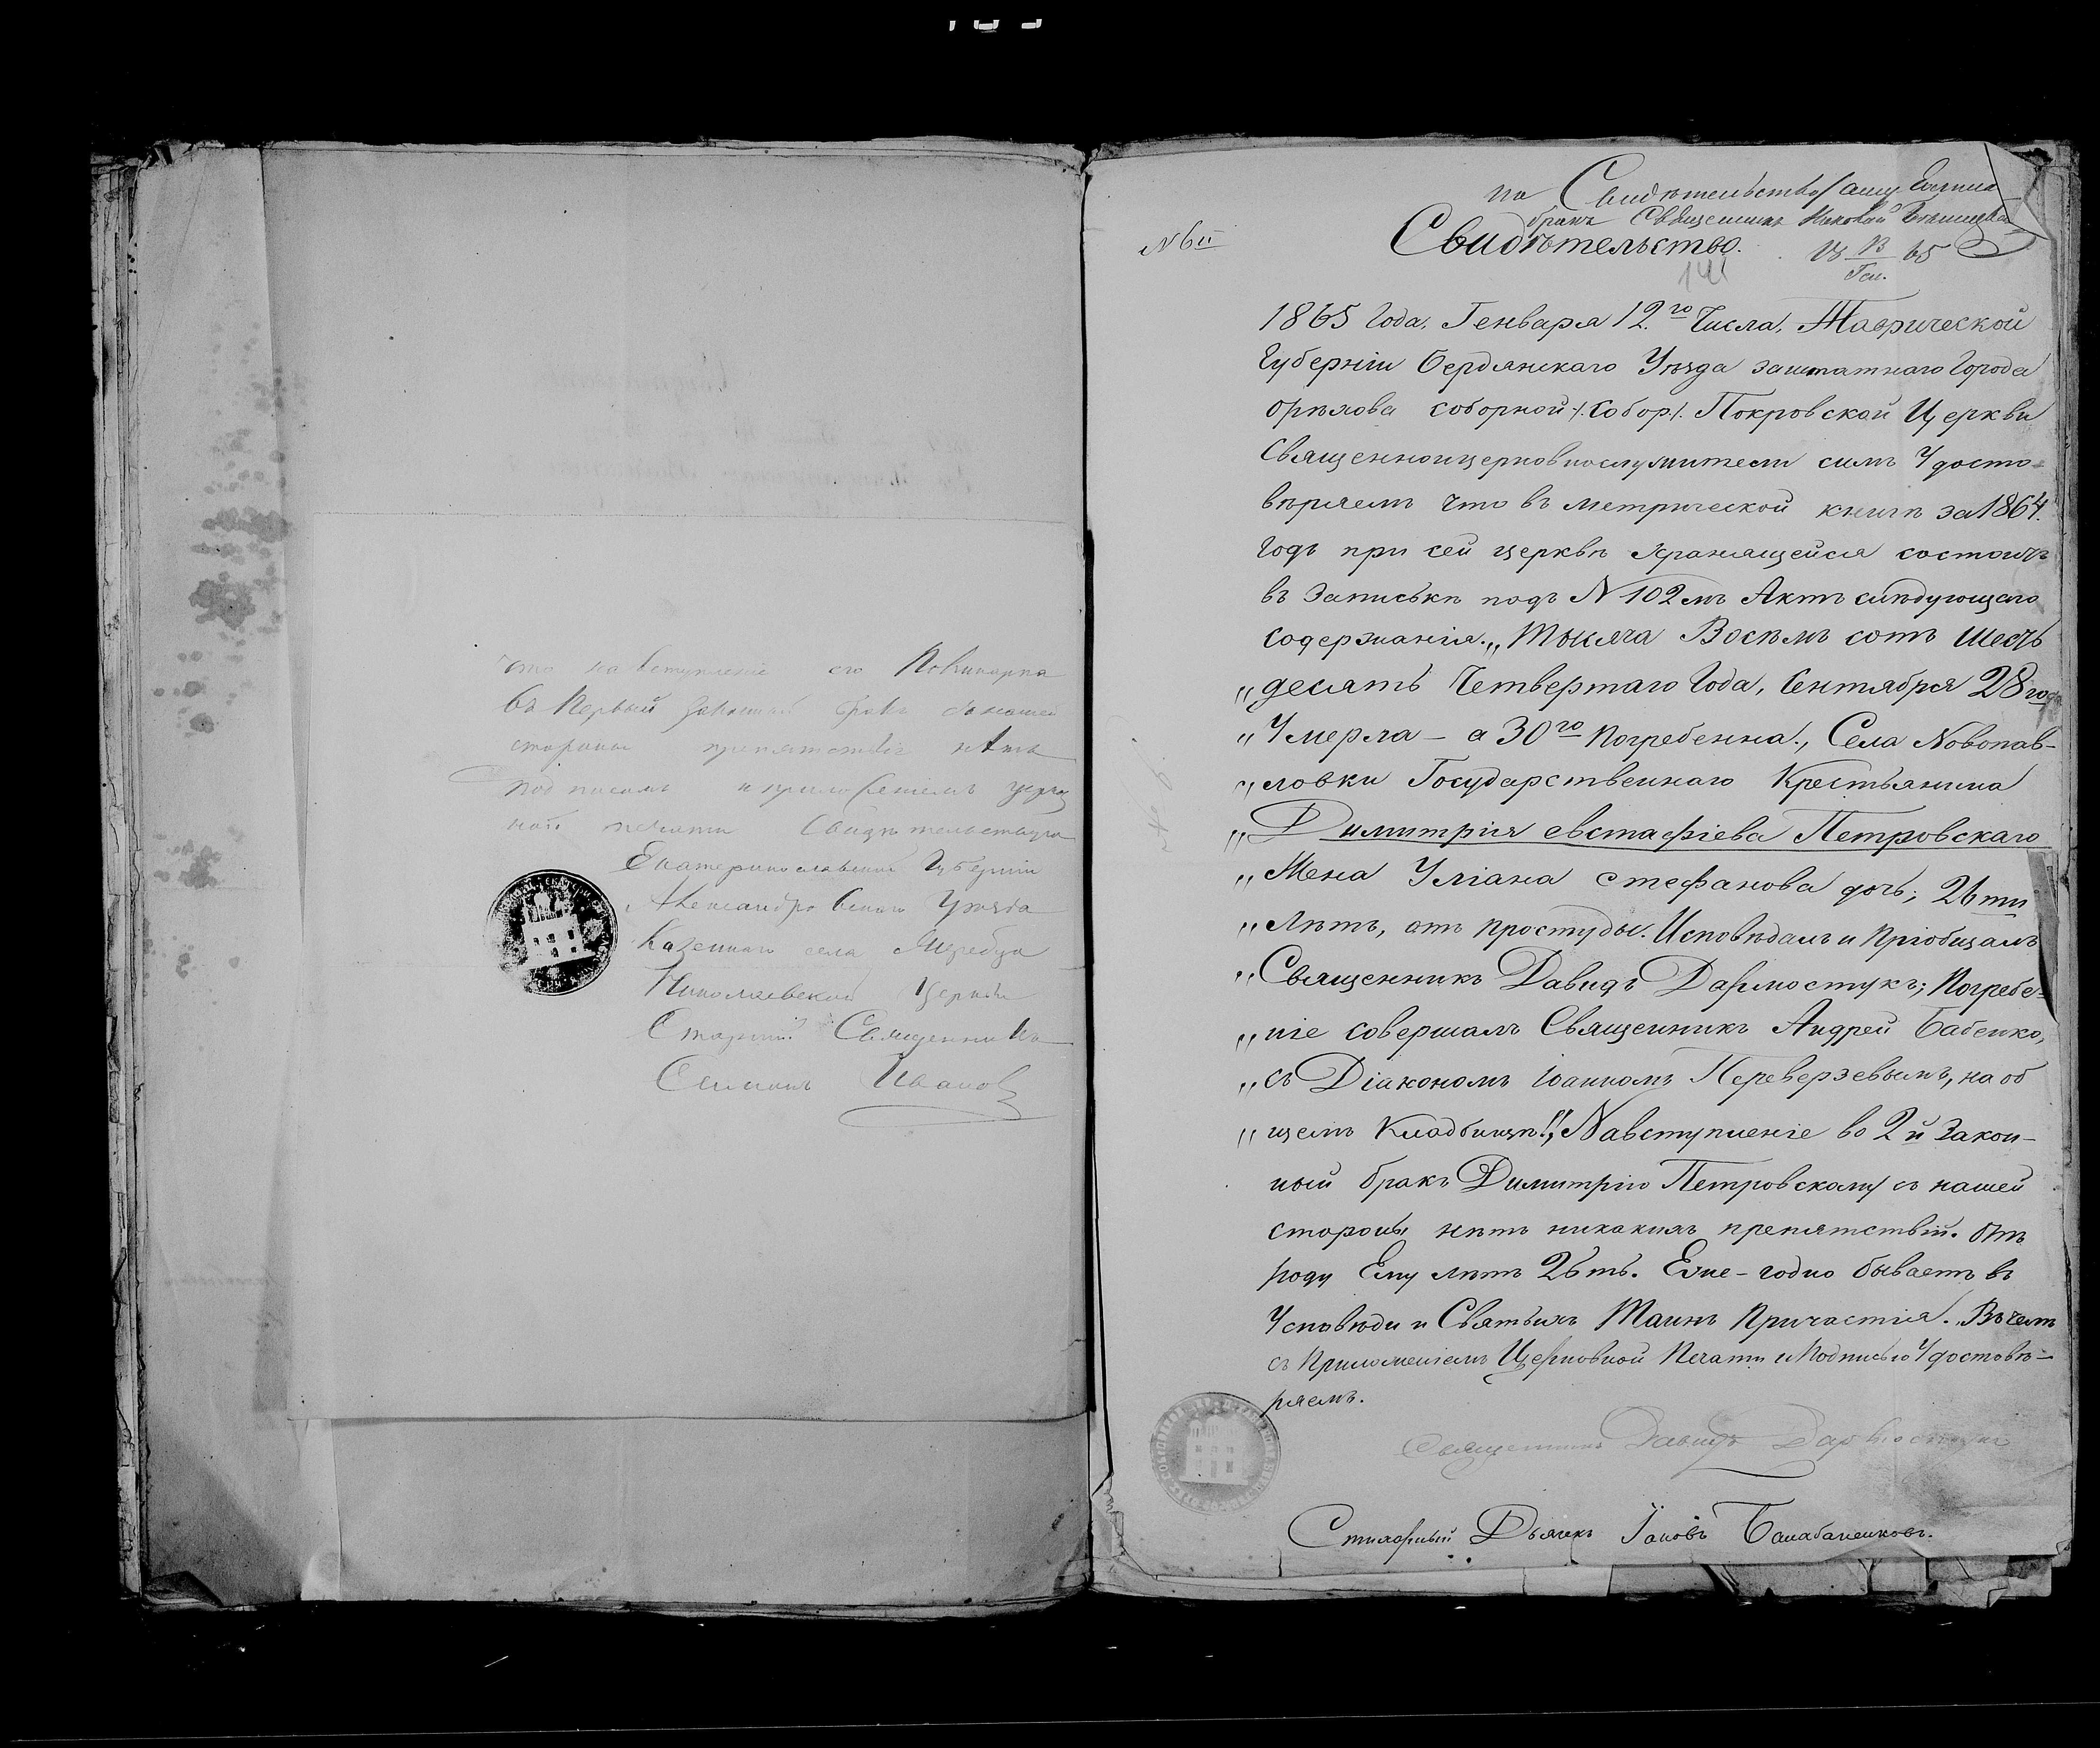 что на вступленіе его Поликарпа
въ Первый Законный бракъ съ нашей
стороны препятствій нѣтъ
подписомъ и приложеніемъ церков
ной печати Свидѣтельствую
Екатеринославской Губерніи
Александровскаго Уѣзда
Казеннаго села
Николаевской Церкви
Старшій Священникъ
Симеонъ Ивановъ
на Свидѣтельство
бракъ Священникъ Николай
N 6й
Свидѣтельство.
141
18 13/Ген. 65
1865 Года. Генваря 12.го Числа. Таврической
Губерніи Бердянскаго Уѣзда заштатнаго Города
Орѣхова соборной /.Собор/. Покровской Церкви
Священноицерковнослужители симъ Удосто-
вѣряемъ что въ метрической книгѣ за 1864.
Годъ при сей церквѣ хранящейся состоитъ
въ Записькѣ подъ N 102мъ Актъ слѣдующаго
содержанія. „Тысяча Восѣмъ сотъ Шесть
„десятъ Четвертаго Года, Сентября 28го
„Умерла – а 30го Погребенна., Села Новопав-
„ловки Государственнаго Крестьянина
„Димитрія евстафіева Петровскаго
„Жена Уліана стефанова дочь; 26ти
„Лѣтъ, отъ простуды. Исповѣдалъ и Пріобщалъ
„Священникъ Давидъ Дармостукъ; Погребе-
„ніе совершалъ Священникъ Андрей Бабенко,
„съ Діакономъ Іоанномъ Переверзевымъ, на об
„щемъ Кладбищѣ!„ Навступленіе во 2й Закон-
ный бракъ Димитрію Петровскому съ нашей
стороны нѣтъ никакихъ препятствій. Отъ
роду Ему лѣтъ 26ть. Еже-годно бываетъ въ
Усповѣди и Святыхъ Таинъ Причастія. Въ чемъ
съ Приложеніемъ Церковной Печати и Подписью Удостовѣ-
ряемъ.
Священникъ Давидъ Дармостукъ
Стихарный Дьячекъ Іаковъ Балабаненковъ.